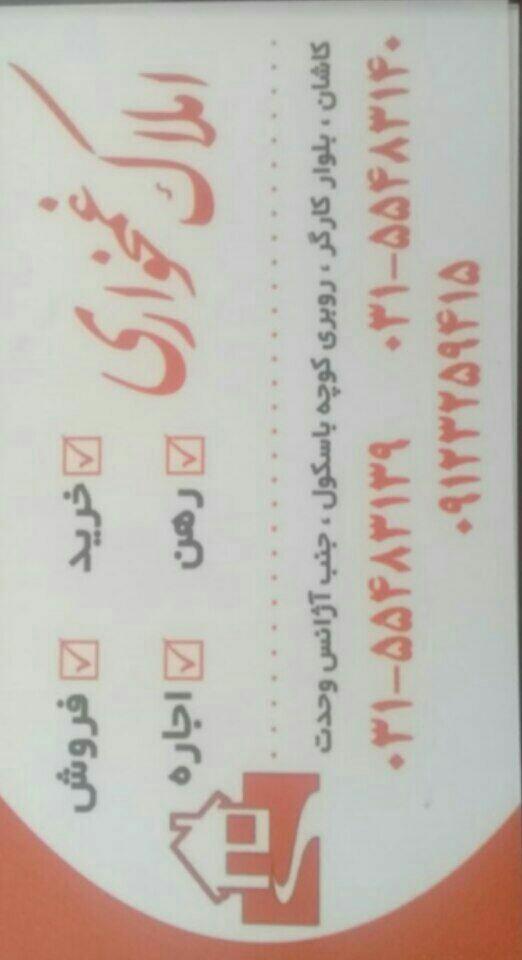 املاک غمخواری
خرید
فروش
رهن
اجاره
کاشان ، بلوار کارگر ، روبری کوچه باسکول ، جنب آژانس وحدت
۰۳۱-۵۵۴۸۳۱۳۹ ۰۳۱-۵۵۴۸۳۱۴۰
۰۹۱۲۳۲۵۹۴۱۵